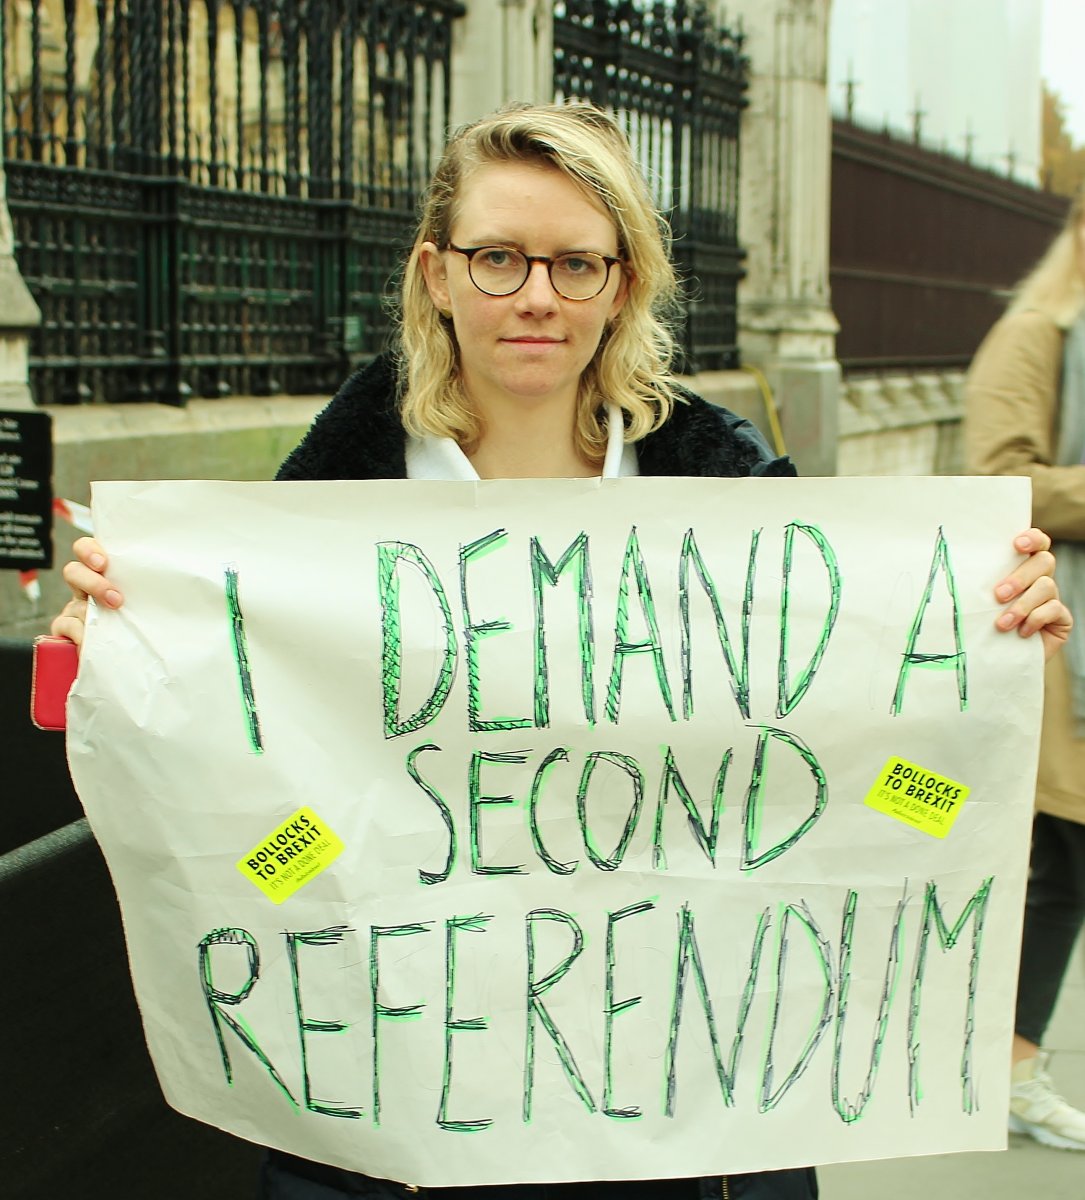 I DEMAND A
SECOND
REFERENDUM
BOLLOCKS
TO BREXIT
IT'S NOT A DONE DEAL
BOLLOCKS
TO BREXIT
IT'S NOT A DONE DEAL